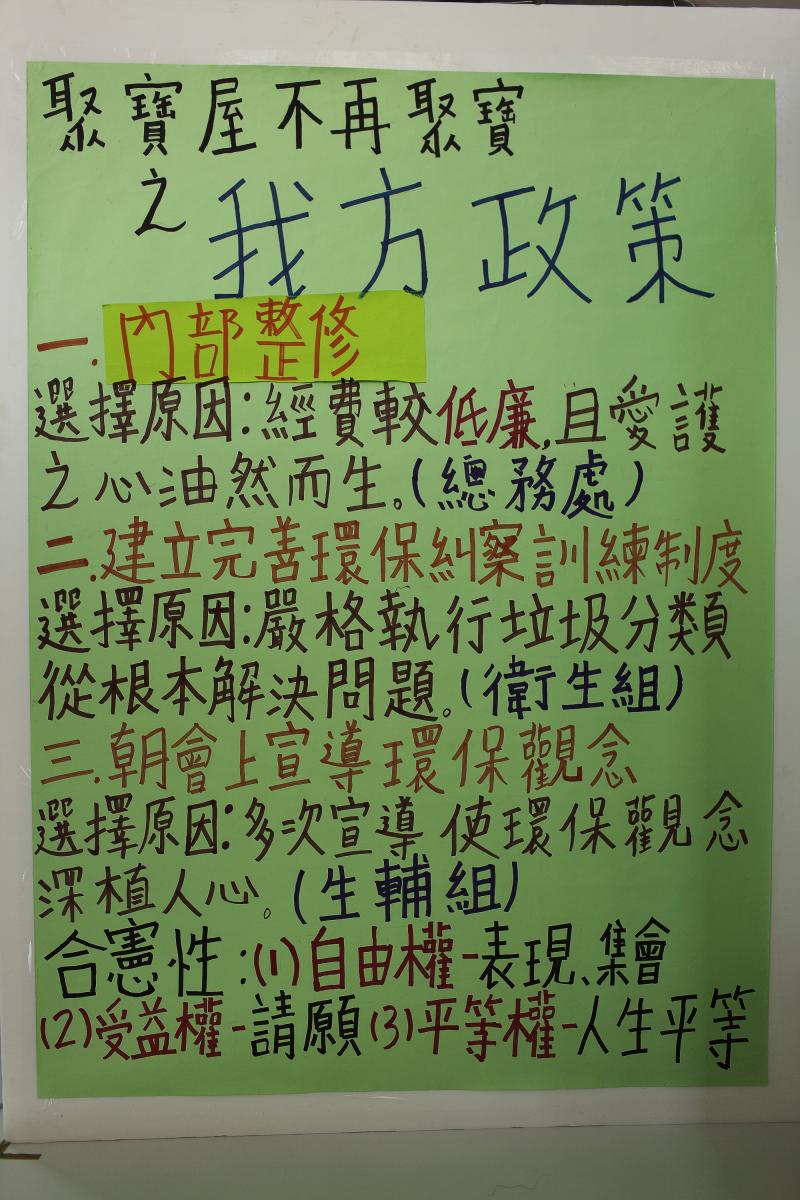 聚寶屋不再聚寶
之我方政策
一.內部整修
選擇原因:經費較低廉,且愛護
之心油然而生。(總務處)
二.建立完善環保糾察訓練制度
選擇原因:嚴格執行垃圾分類
從根本解決問題。(衛生組)
三.朝會上宣導環保觀念
選擇原因:多次宣導使環保觀念
深植人心。(生輔組)
合憲性:(1)自由權-表現、集會
(2)受益權-請願(3)平等權-人生平等